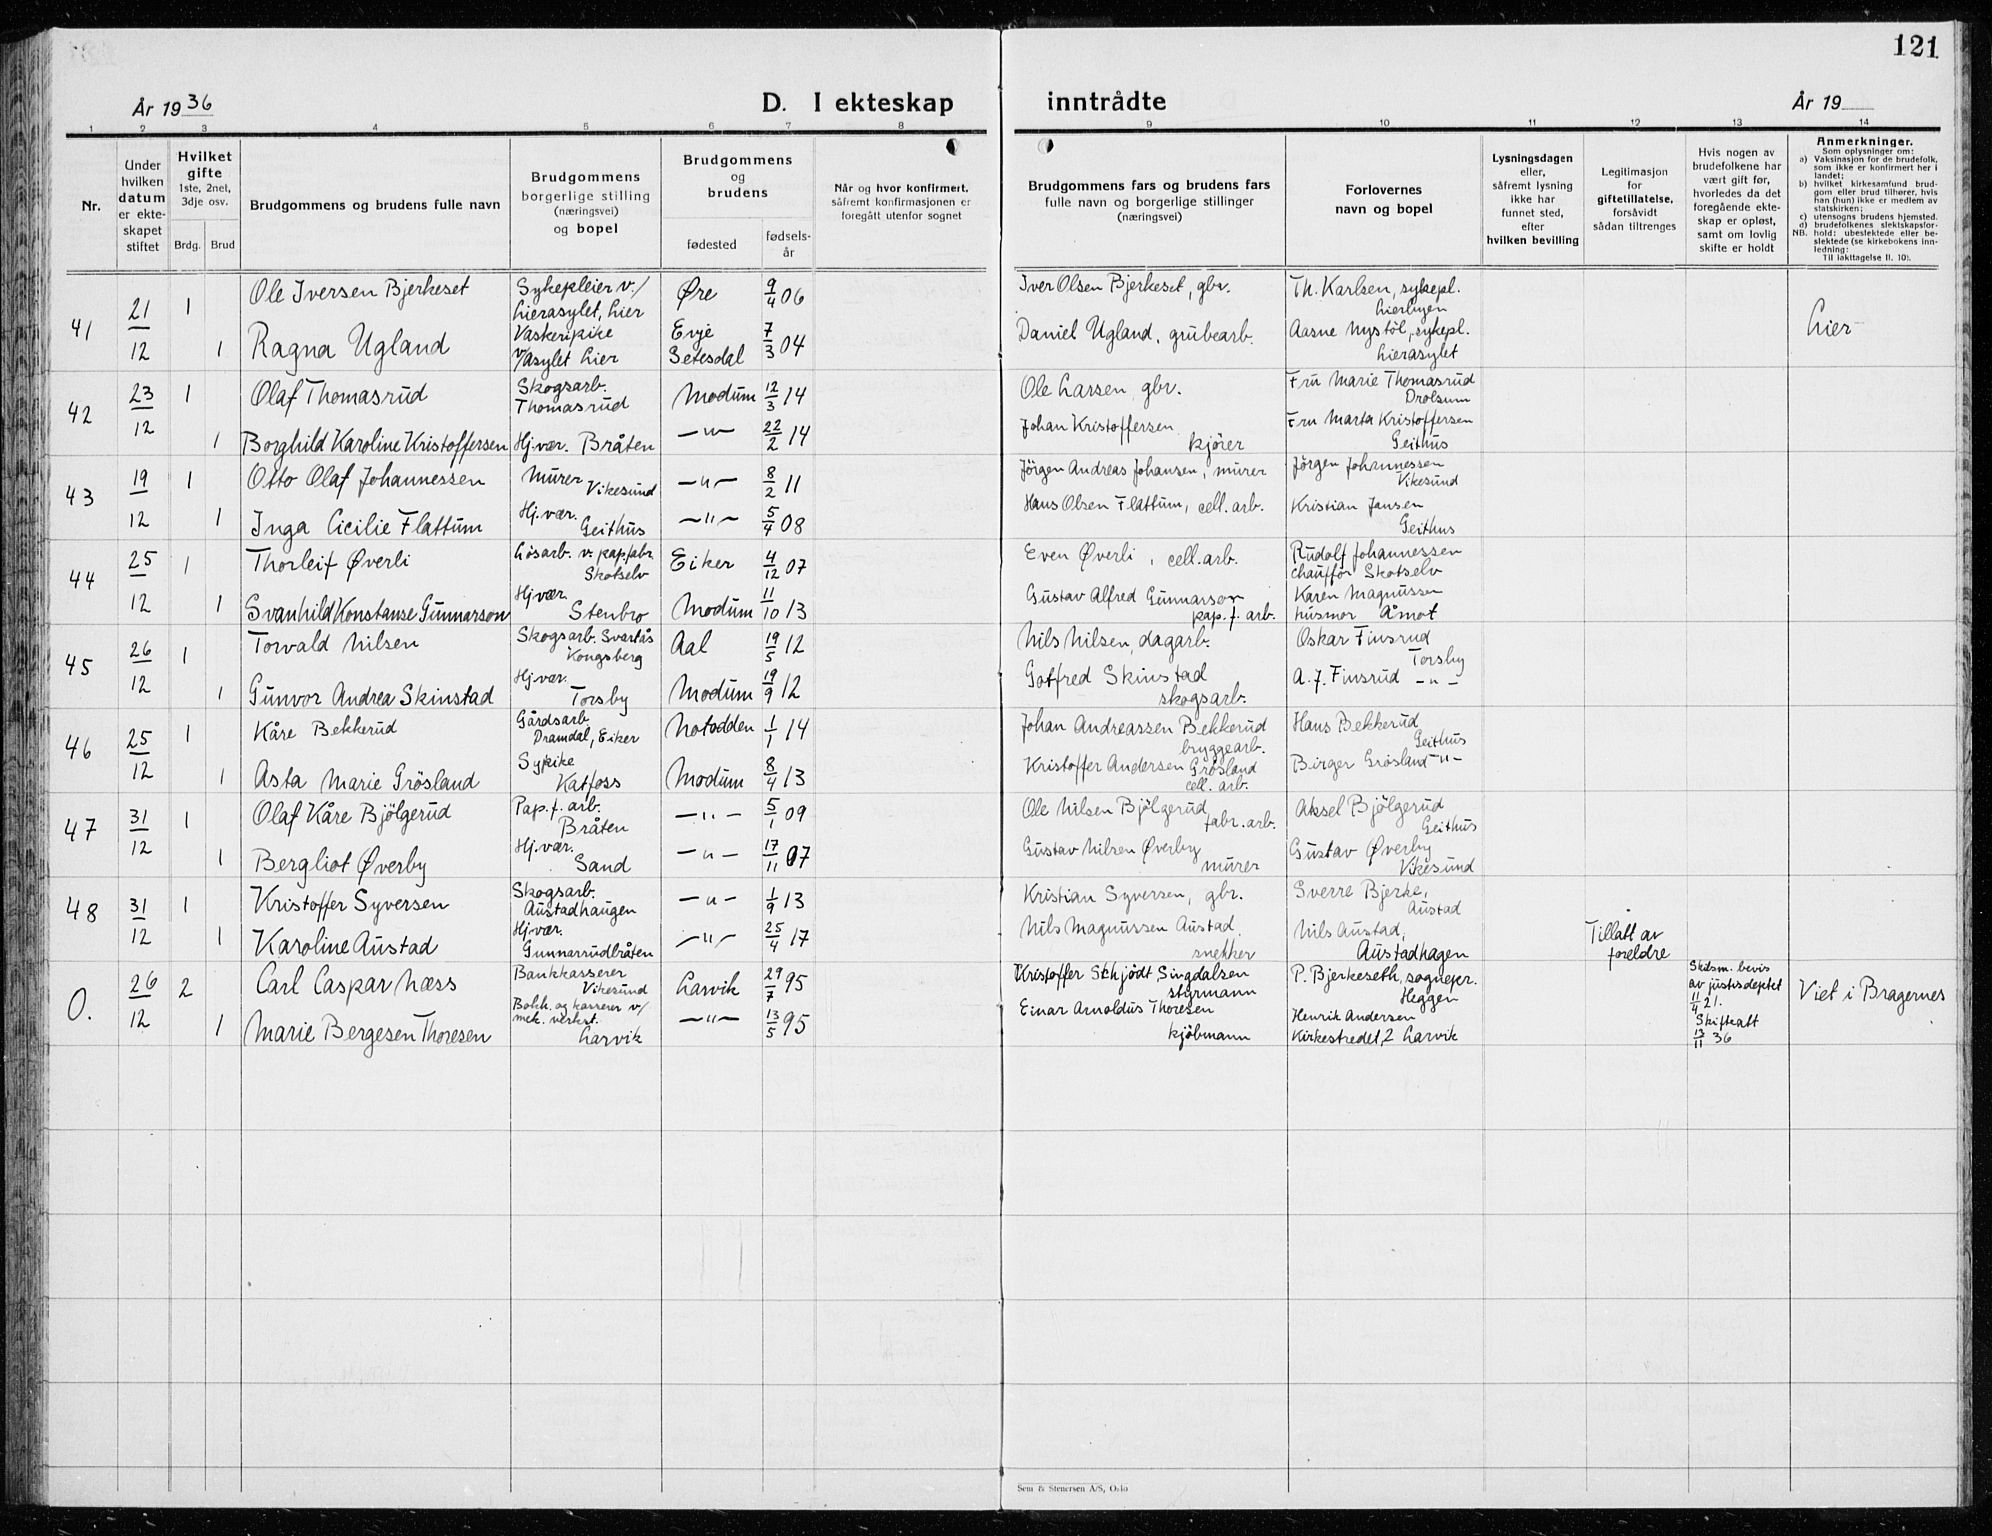 121
År 1936
D. I ekteskap inntrådte
År 19
1 2 3 4 5 6 7 8 9 10 11 12 13 14
Nr.
Under hvilken datum er ekteskapet stiftet
Hvilket gifte
1ste, 2net, 3dje osv.
Brdg. Brud
Brudgommens og brudens fulle navn
Brudgommens borgerlige stilling (næringsvei) og bopel
Brudgommens og brudens
fødested
fødselsår
Når og hvor konfirmert, såfremt konfirmasjonen er foregått utenfor sognet
Brudgommens fars og brudens fars fulle navn og borgerlige stillinger (næringsvei)
Forlovernes navn og bopel
Lysningsdagen eller, såfremt lysning ikke har funnet sted, efter hvilken bevilling
Legitimasjon for giftetillatelse, forsåvidt sådan tiltrenges
Hvis nogen av brudefolkene har vært gift før, hvorledes da det foregående ekteskap er opløst, samt om lovlig skifte er holdt
Anmerkninger.
Som oplysninger om:
a) Vaksinasjon for de brudefolk, som ikke er konfirmert her i landet;
b) hvilket kirkesamfund brudgom eller brud tilhører, hvis han (hun) ikke er medlem av statskirken;
c) utensogns brudens hjemsted.
d) brudefolkenes slektskapsforhold: ubeslektede eller beslektede (se kirkebokens innledning:
NB.
Til iakttagelse II. 10).
41 21/12 1 Ole Iversen Bjerkeset Sykepleier v/ Lierasylet, Lier Øre 9/4 06 Iver Olsen Bjerkeset, gbr. Th. Karlsen, sykepl. Lierbyen
1 Ragna Ugland Vaskeripike v/Asylet Lier Evje Setesdal 7/3 04 Daniel Ugland, grubearb. Aasne Nystöl, sykepl. Lierasylet Lier
42 23/12 1 Olaf Thomasrud Skogsarb. Thomasrud Modum 12/3 14 Ole Larsen, gbr. Fru Marie Thomasrud Drolsum
1 Borghild Karoline Kristoffersen Hj.vær. Bråten —"— 22/2 14 Johan Kristoffersen kjörer Fru Marta Kristoffersen Geithus
43 19/12 1 Otto Olaf Johannessen Murer Vikesund —"— 8/2 11 Jörgen Andreas Johansen, murer Jörgen Johannessen Vikesund
1 Inga Cicilie Flattum Hj.vær. Geithus —"— 5/4 08 Hans Olsen Flattum, cell.arb. Kristian Jensen Geithus
44 25/12 1 Thorleif Øverli Lösarb. v. papfabr. Skotselv Eiker 4/12 07 Even Øverli, cell.arb. Rudolf Johannessen chaufför Skotselv
1 Svanhild Konstanse Gunnarson Hj.vær Stenbro Modum 11/10 13 Gustav Alfred Gunnarson pap.f. arb. Karen Magnussen husmor Åmot
45 26/12 1 Torvald Nilsen Skogsarb. Svartås Kongsberg Aal 19/5 12 Nils Nilsen, dagarb. Oskar Finsrud Torsby
1 Gunvor Andrea Skinstad Hj.vær. Torsby Modum 19/9 12 Gotfred Skinstad skogsarb. A. J. Finsrud —"—
46 25/12 1 Kåre Bekkerud Gårdsarb. Dramdal, Eiker Notodden 1/1 14 Johan Andreassen Bekkerud bryggearb. Hans Bekkerud Geithus
1 Asta Marie Grösland Sypike Katfoss Modum 8/4 13 Kristoffer Andersen Grösland cell. arb. Birger Grösland —"—
47 31/12 1 Olaf Kåre Bjölgerud Pap.f. arb. Bråten —"— 5/1 09 Ole Nilsen Bjölgerud fabr.arb. Aksel Bjölgerud Geithus
1 Bergliot Øverby Hj.vær. Sand —"— 17/11 07 Gustav Nilsen Øverby murer Gustav Øverby Vikesund
48 31/12 1 Kristoffer Syversen Skogsarb. Austadhaugen —"— 1/9 13 Kristian Syversen, gbr. Sverre Bjerke, Austad
1 Karoline Austad Hj.vær. Gunnarrudbråten —"— 25/4 17 Nils Magnussen Austad snekker Nils Austad, Austadhagen Tillatt av foreldre
0. 26/12 2 Carl Caspar Næss Bankkasserer Vikesund Larvik 29/7 95 Kristoffer Schjödt Singdalsen styrmann P. Bjerkeseth, sognepr. Heggen Skilsm. bevis av justisdeptet 11/4 21. Skifteatt 17/11 36 Viet i Bragernes
1 Marie Bergesen Thoresen Bokh. og kasserer v/ mek. verkst. Larvik —"— 13/5 95 Einar Arnoldus Thoresen kjöbmann Henrik Andersen Kirkestredet 2 Larvik
Sem & Stenersen A/S, Oslo